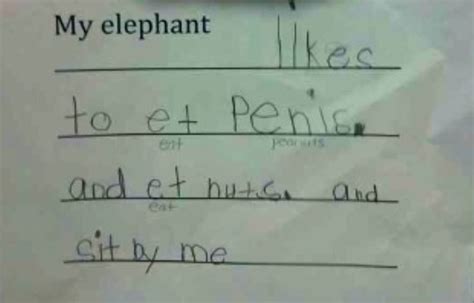 My elephant likes
to et Penis.
eat peanuts
and et nuts. and
eat
sit by me